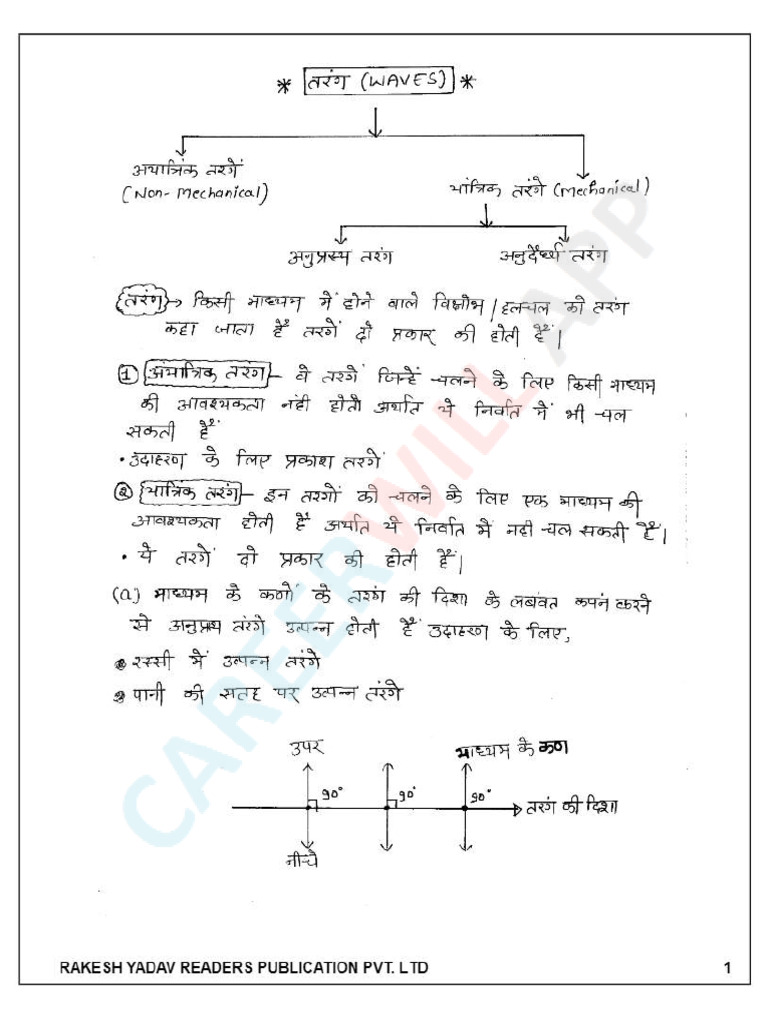 * तरंग (WAVES) *
अयांत्रिक तरगें
(Non-Mechanical)
यांत्रिक तरंगे (Mechanical)
अनुप्रस्थ तरंग
अनुदैर्ध्य तरंग
तरंग → किसी माध्यम में होने वाले विक्षोभ/हलचल को तरंग
कहा जाता है तरगें दो प्रकार की होती हैं|
① अयांत्रिक तरंग - वे तरगें जिन्हें चलने के लिए किसी माध्यम
की आवश्यकता नही होती अर्थात ये निर्वात में भी चल
सकती हैं
• उदाहरण के लिए प्रकाश तरगें
② यांत्रिक तरंग - इन तरगों को चलने के लिए एक माध्यम की
आवश्यकता होती है अर्थात ये निर्वात मे नही चल सकती हैं|
• ये तरगें दो प्रकार की होती हैं|
(a) माध्यम के कणों के तरंग की दिशा के लबंवत कपंन करने
से अनुप्रस्थ तंरगे उत्पन्न होती हैं उदाहरण के लिए,
रस्सी में उत्पन्न तरंगे
पानी की सतह पर उत्पन्न तरंगे
उपर
माध्यम के कण
90° 90° 90°
तरंग की दिशा
नीचे
CAREERWILL APP
RAKESH YADAV READERS PUBLICATION PVT. LTD 1